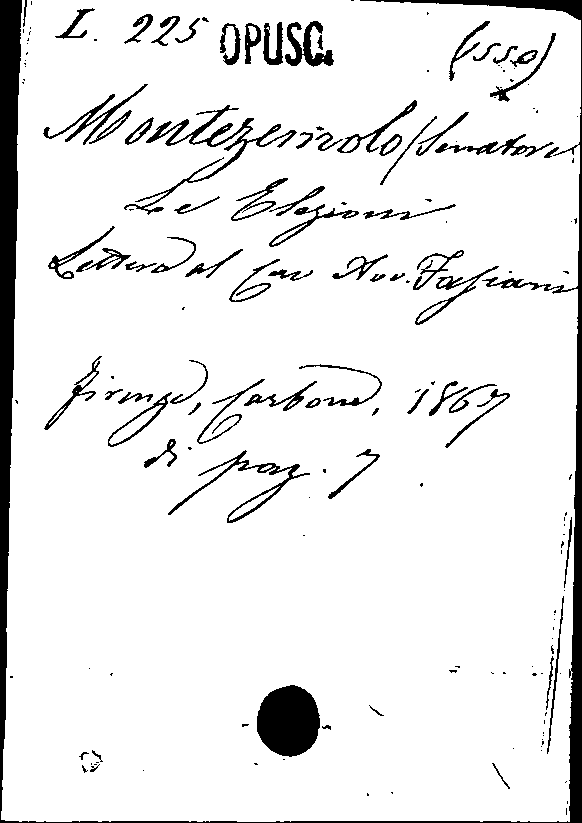 I. 225 OPUSC. (550)
Montezemolo (Senatore
Le Elezioni
Lettera al Cav Avv. Fasiani
Firenze, Carbone, 1867
di pag. 7.